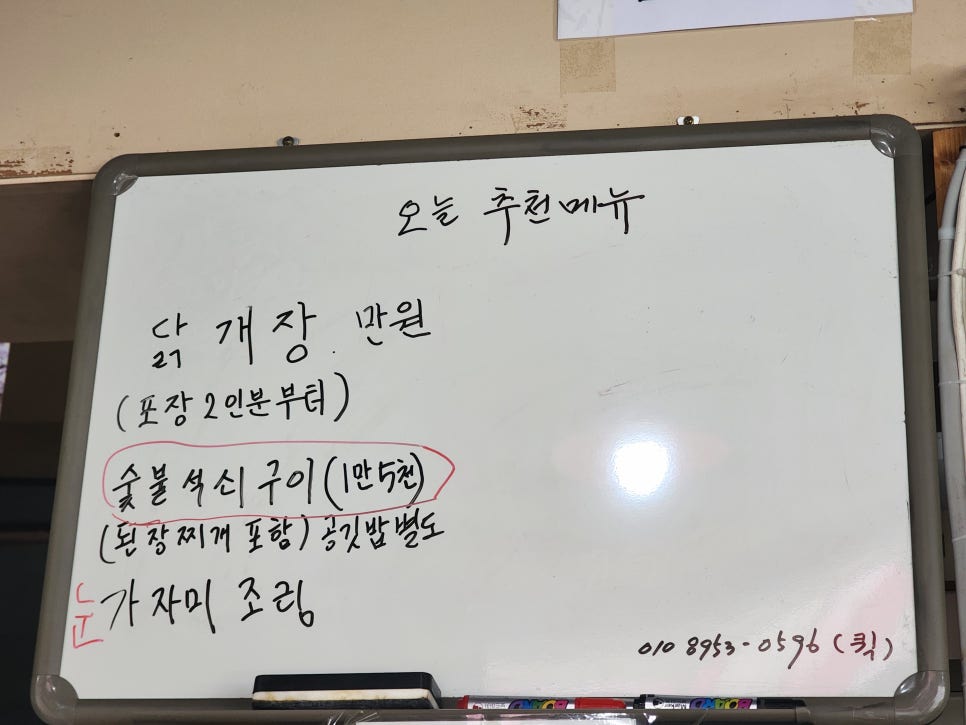 오늘 추천메뉴
닭개장 만원
(포장 2인분부터)
숯불석쇠구이(1만5천)
(된장찌개 포함) 공깃밥별도
눈가자미 조림
010 8953-0596 (퀵)
BOARD
BOARD